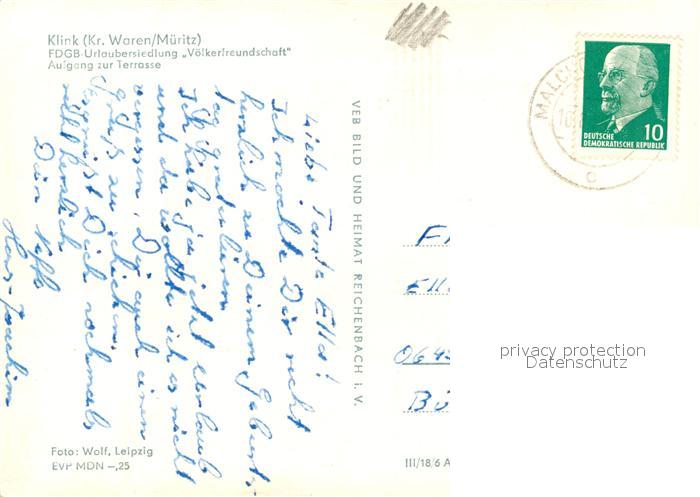 Klink (Kr. Waren/Müritz)
FDGB-Urlaubersiedlung „Völkerfreundschaft"
Aufgang zur Terrasse
Liebe Tante Ella!
Ich möchte Dir recht
herzlich zu Deinem Geburts-
tag gratulieren.
Ich habe ja jetzt Urlaub
und da wollte ich es nicht
vergessen, Dir auch einen
Gruß zu schicken.
Es grüßt Dich nochmals
recht herzlich
Dein Neffe
Hans-Joachim
VEB BILD UND HEIMAT REICHENBACH i. V.
Foto: Wolf, Leipzig
EVP MDN –,25
III/18/6 A
MALCH
10
c
DEUTSCHE
DEMOKRATISCHE REPUBLIK
10
F
Ell
064
BÜ
privacy protection
Datenschutz